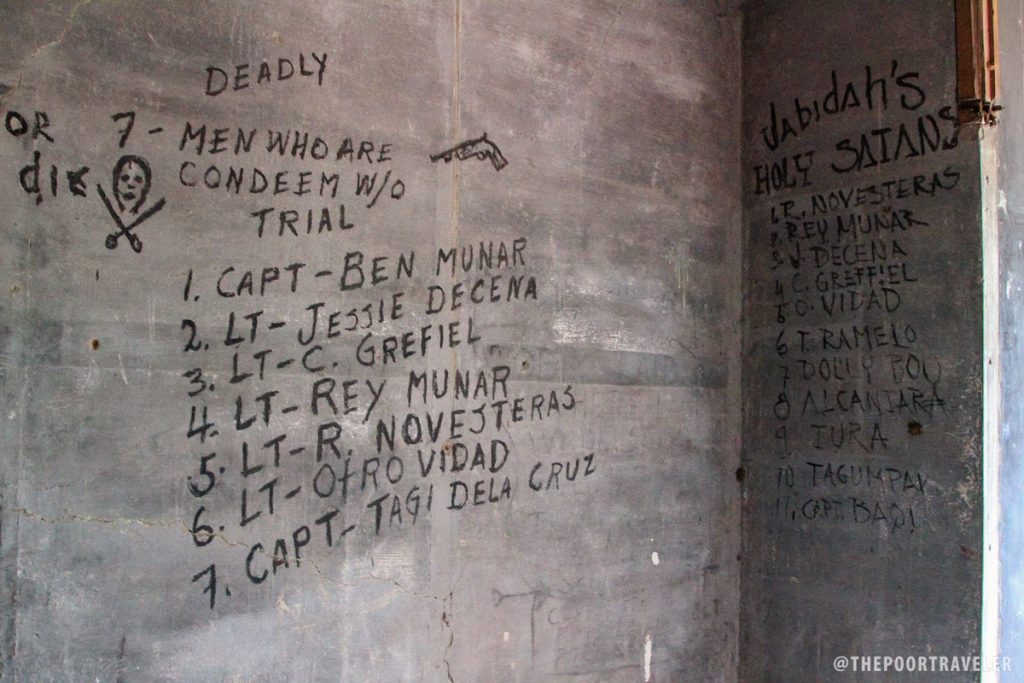 DEADLY
OR 7 - MEN WHO ARE
die CONDEEM W/O
TRIAL
1. CAPT - BEN MUNAR
2. LT - JESSIE DECENA
3. LT - C. GREFIEL
4. LT - REY MUNAR
5. LT - R. NOVESTERAS
6. LT - OTRO VIDAD
7. CAPT - TAGI DELA CRUZ
Jabidah's
HOLY SATANS
1. R. NOVESTERAS
2. REY MUNAR
3. J. DECENA
4 C. GREFFIEL
5 O. VIDAD
6 T. RAMELO
7 DOLLY
8 ALCANTARA
9 TURA
10 TAGUMPAY
11. CAPT
@THEPOORTRAVELER